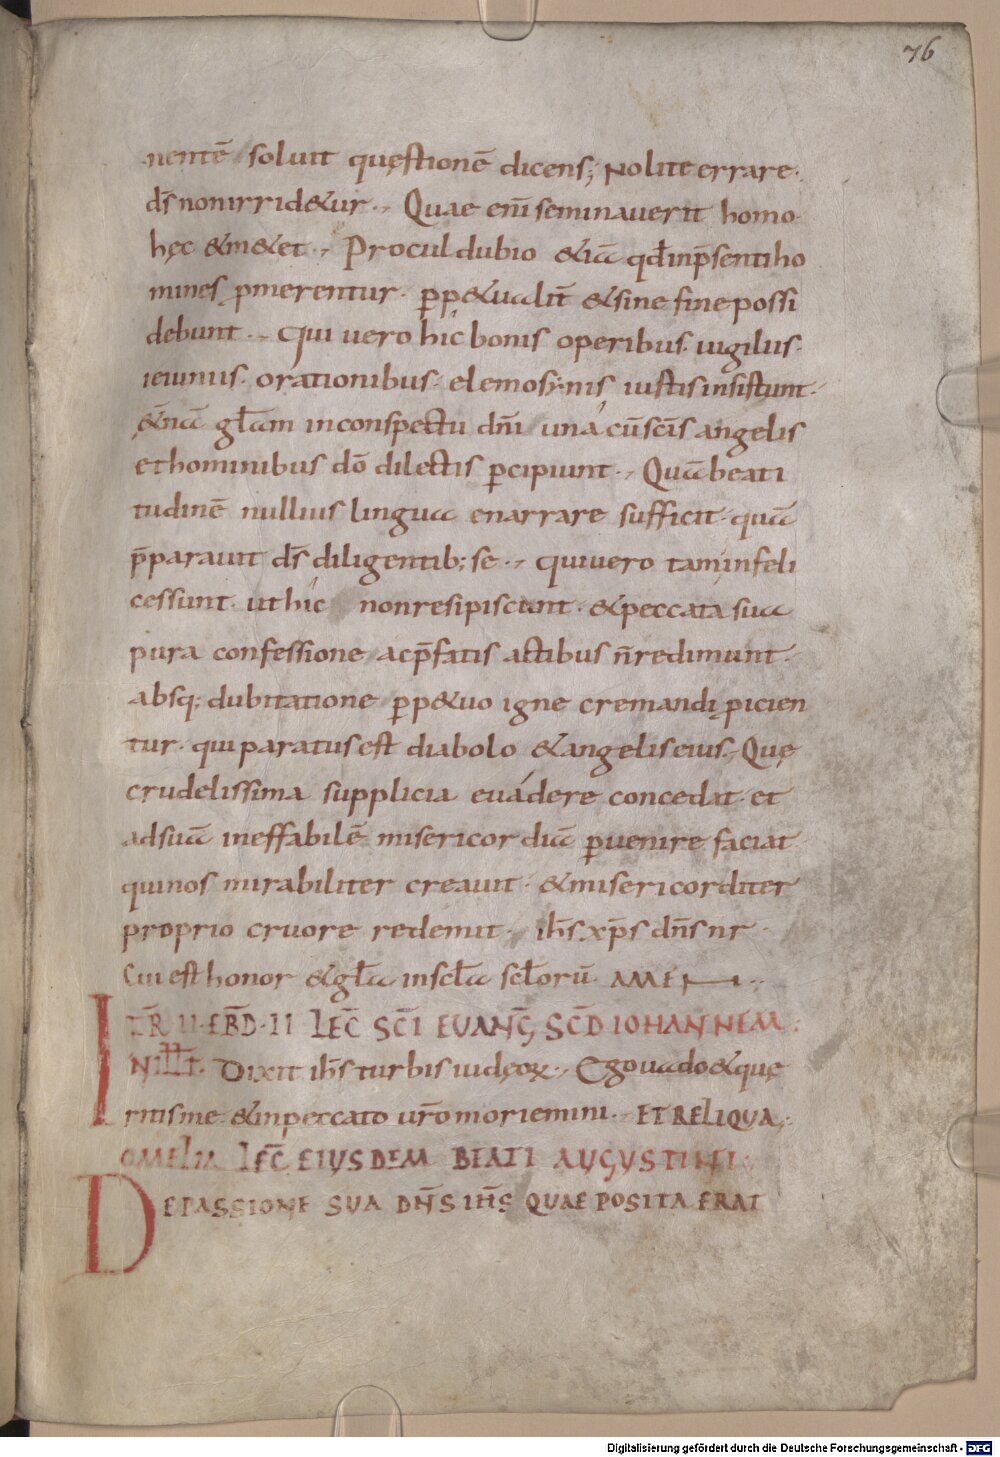 76
nentē soluit quęstionē dicens; Nolite errare.
d̄s non irrid&ur. Quae eni̅ seminauerit homo
hęc & m&et. Procul dubio &iā qd̄ in p̄senti ho
mines ꝓmerentur. ꝑp&ualit̄ & sine fine possi
debunt. Qui uero hic bonis operibus. uigiliis.
ieiuniis. orationibus. elemosynis iustis insistunt.
&̄nā gl̄am in conspectu dn̄i una cū sc̄is angelis
et hominibus dō dilectis ꝑcipiunt. Quā beati
tudinē nullius lingua enarrare sufficit. quā
p̄parauit d̄s diligentib; se. Qui uero tam infeli
ces sunt. ut hic non resipiscant. & peccata sua
pura confessione ac p̄fatis actibus n̄ redimunt.
absq; dubitatione ꝑp&uo igne cremandi ꝓicien
tur. qui paratus est diabolo & angelis eius. Quę
crudelissima supplicia euádere concedat. et
ad suā ineffabilē misericordiā ꝑuenire faciat
qui nos mirabiliter creauit. & misericorditer
proprio cruore redemit. ih̄s xp̄s dn̄s nr̄.
Cui est honor & gl̄a in sc̄la sc̄lorū. AMEN.
FR̄ II. EBD̄. II LEC̄ SC̄I EUANḠ SC̄D IOHANNEM:
IN ILL̄ T̄. Dixit ih̄s turbis iudęoꝝ. Ego uado & quę
ritis me. & in peccato ur̄o moriemini. ET RELIQUA.
OMELIA LEC̄ EIUSDEM BEATI AUGUSTINI.
DE PASSIONE SUA DN̄S IH̄S QUAE POSITA ERAT
Digitalisierung gefördert durch die Deutsche Forschungsgemeinschaft - DFG